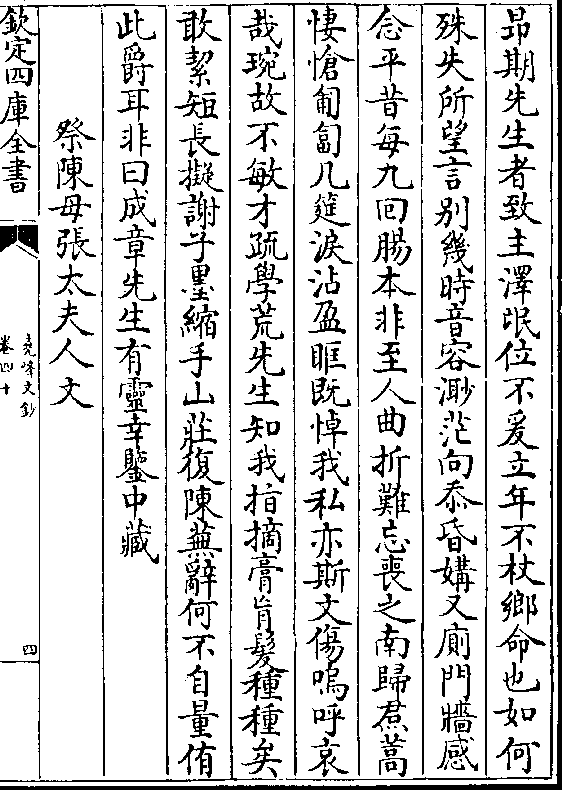 昂期先生者致主澤氓位不爰立年不杖鄉命也如何
殊失所望言别幾時音容渺茫向忝昏媾又廁門牆感
念平昔每九囘腸本非至人曲折難忘喪之南歸焄蒿
悽愴匍匐几筵淚沾盈眶既悼我私亦斯文傷嗚呼哀
哉琬故不敏才疏學荒先生知我指摘膏肓髮種種矣
敢絜短長擬謝子墨縮手山莊復陳蕪辭何不自量侑
此爵耳非曰成章先生有靈幸鑒中藏
祭陳母張太夫人文
欽定四庫全書
堯峰文鈔
卷四十
四